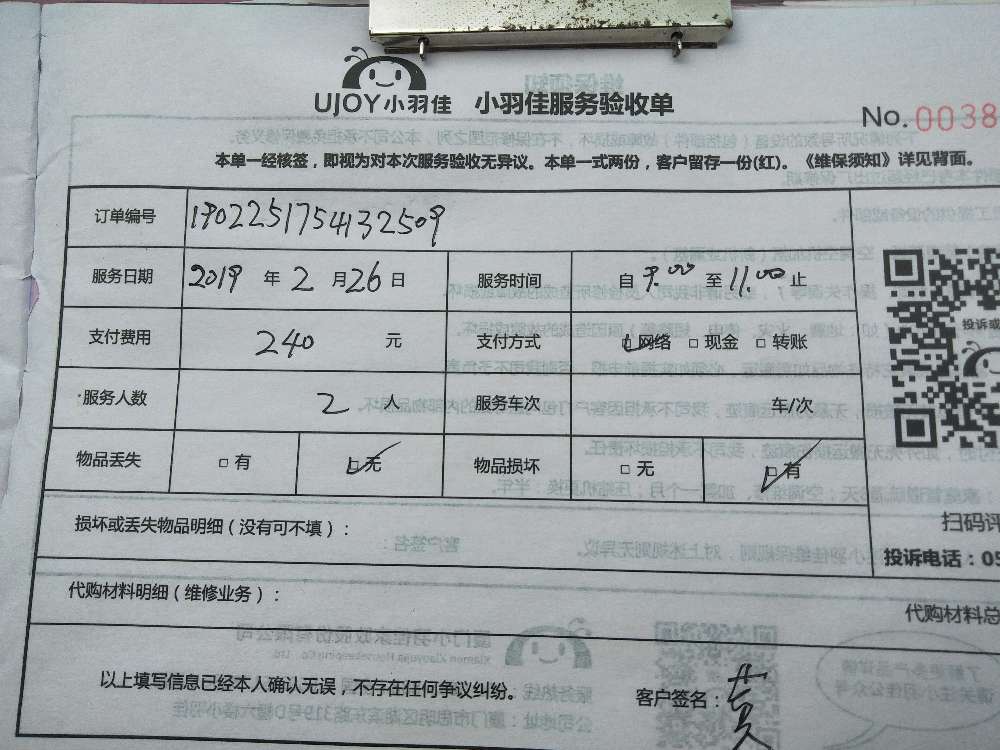 UJOY小羽佳 小羽佳服务验收单
No. 0038
本单一经核签，即视为对本次服务验收无异议。本单一式两份，客户留存一份(红)。《维保须知》详见背面。
订单编号 1902251754132509
服务日期 2019 年 2 月 26 日 服务时间 自 9.00 至 11.00 止
支付费用 240 元 支付方式 □网络 □现金 □转账
服务人数 2 人 服务车次 车/次
物品丢失 □有 □无 物品损坏 □无 □有
投诉或
损坏或丢失物品明细（没有可不填）：
扫码评
投诉电话：05
代购材料明细（维修业务）：
代购材料总
以上填写信息已经本人确认无误，不存在任何争议纠纷。
客户签名：黄